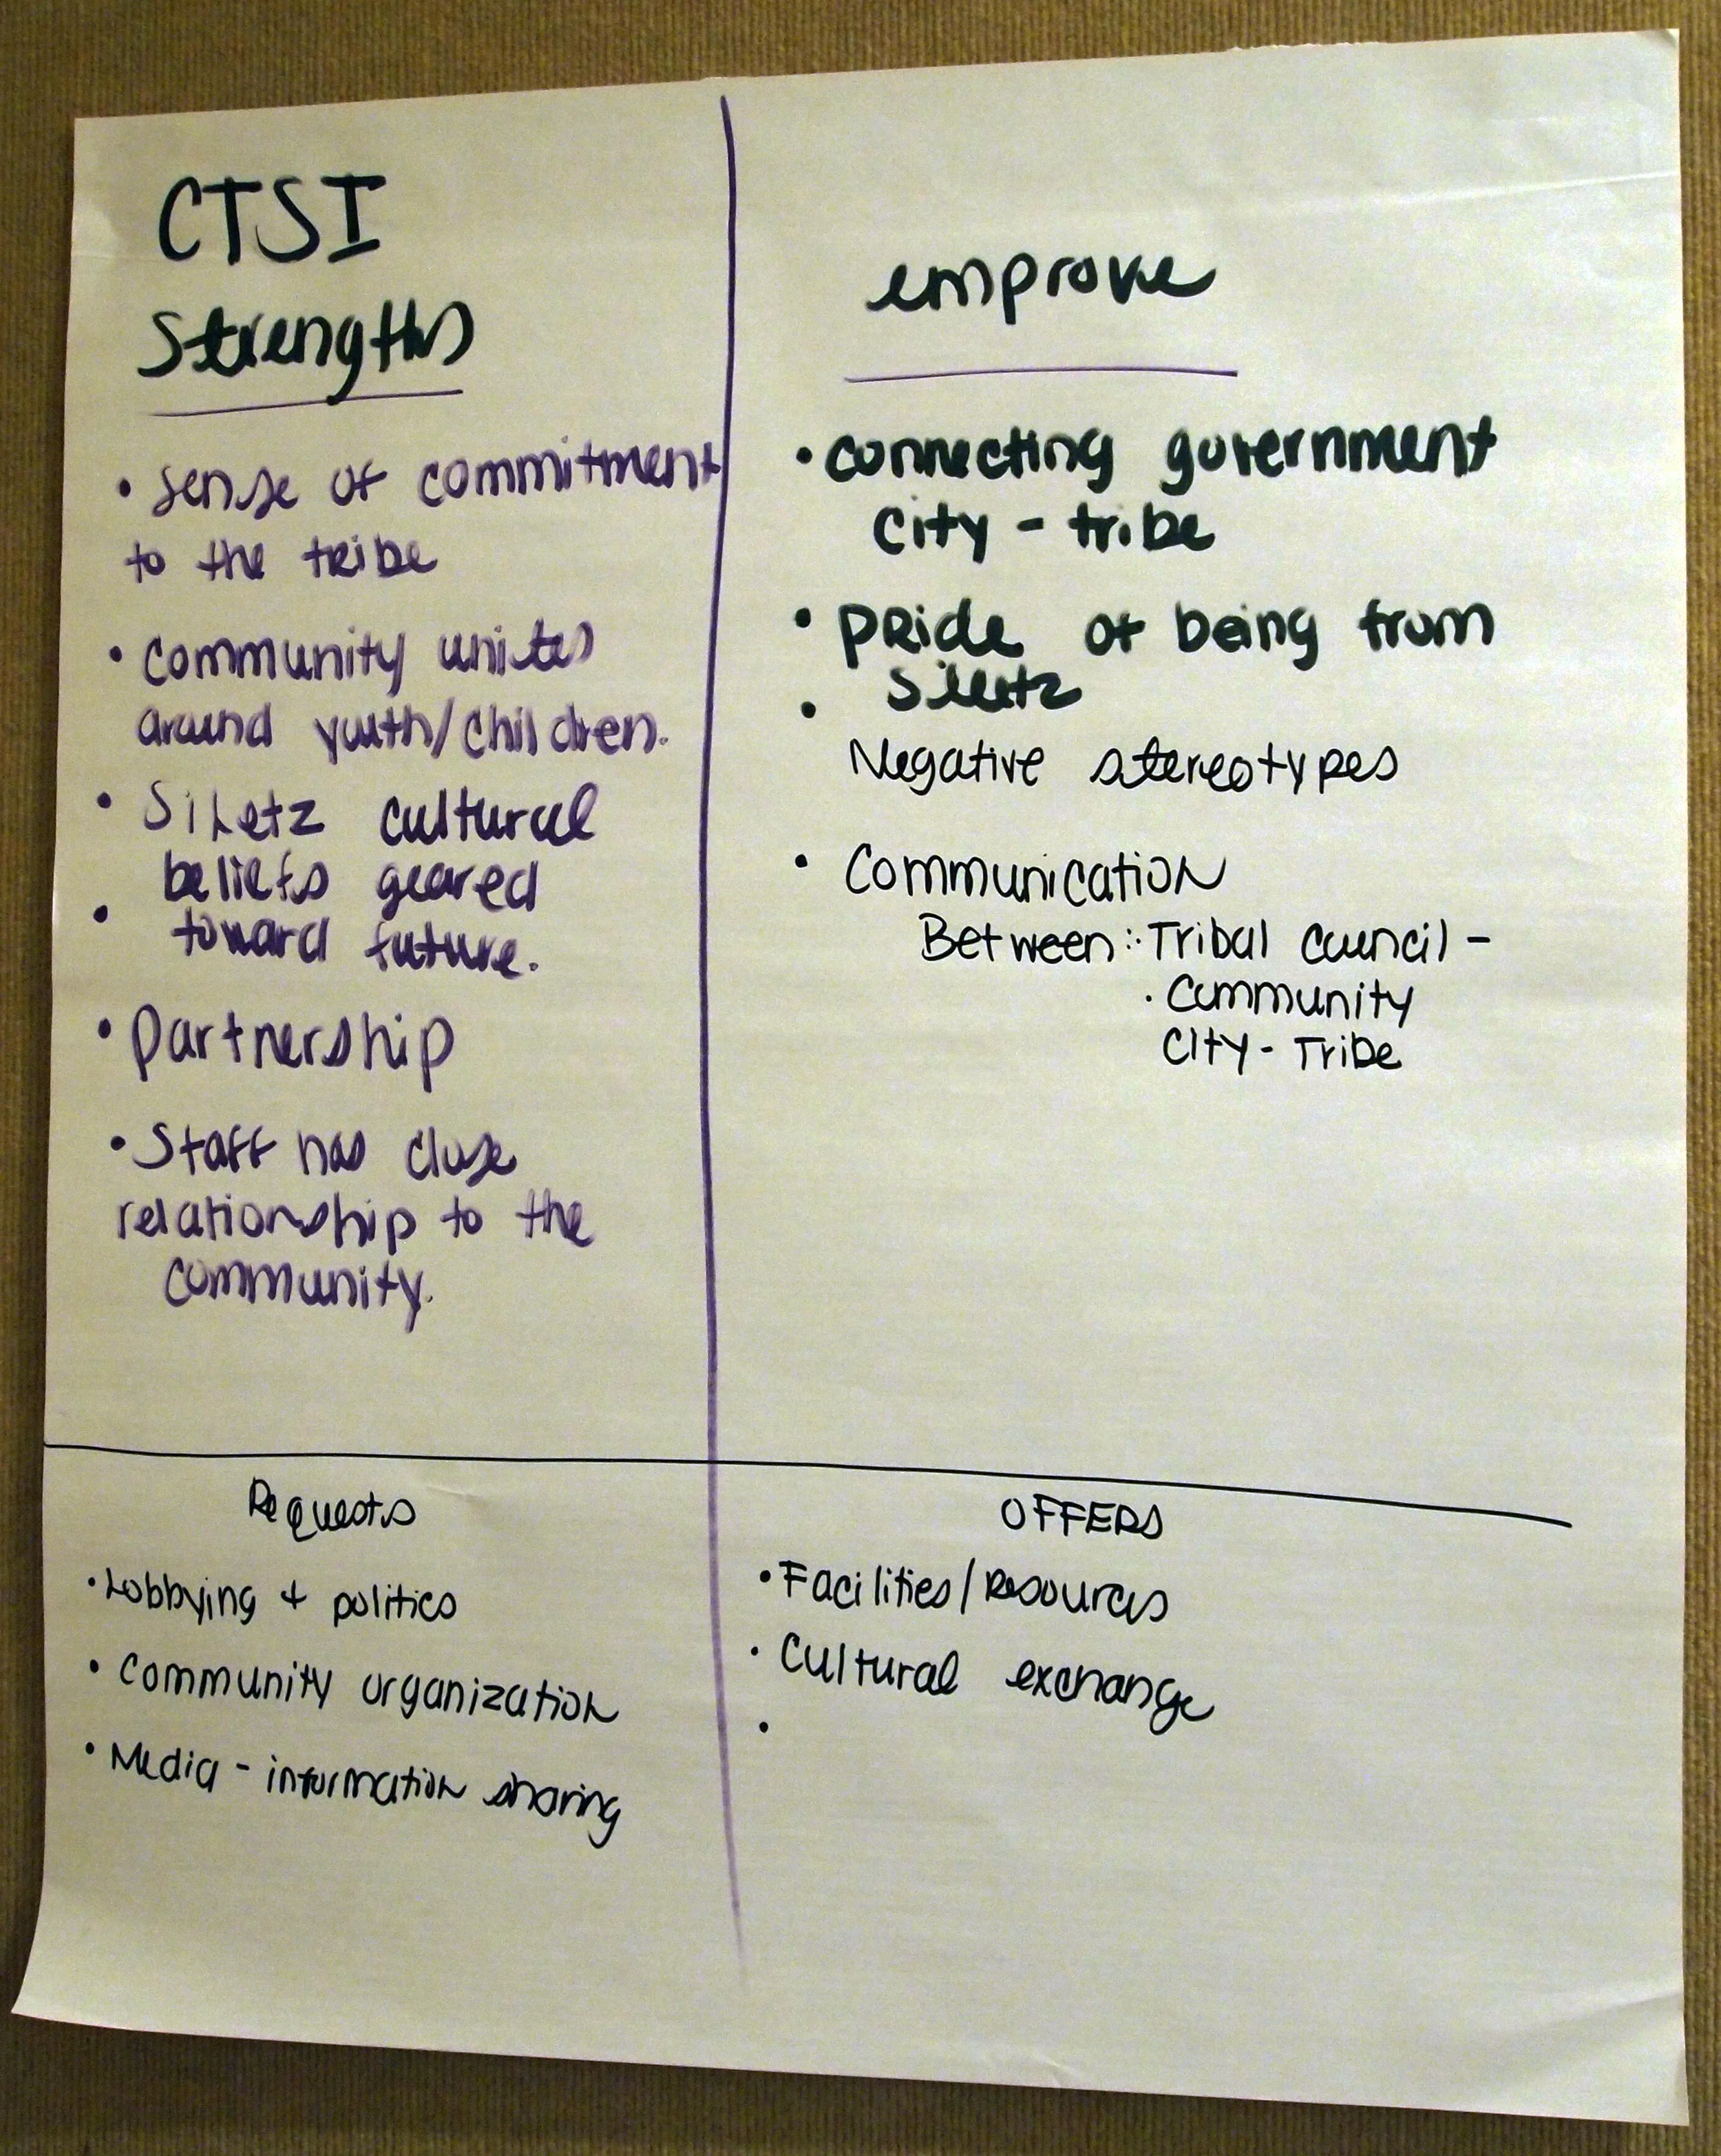 CTSI
Strengths
• sense of commitment
to the tribe
• community unites
around youth/children.
• Siletz cultural
beliefs geared
• toward future.
• Partnership
• Staff has close
relationship to the
community.
emprove
• connecting government
city - tribe
• pride of being from
Siletz
•
Negative stereotypes
• Communication
Between: · Tribal council -
· Community
City - Tribe
Requests
• Lobbying + politics
• Community organization
• Media - information sharing
OFFERS
• Facilities/Resources
• Cultural exchange
•